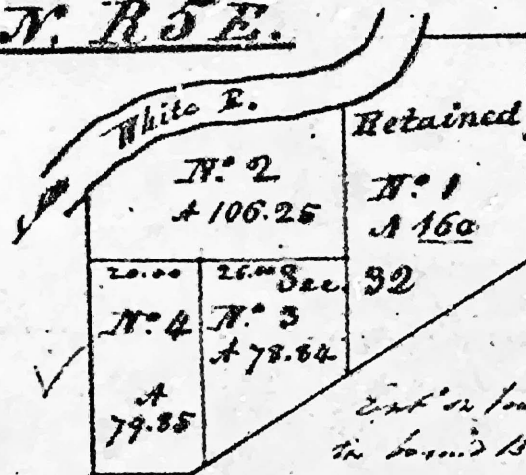 N. R5E.
White R.
Retained
Nº 2
A 106.25
Nº 1
A 160
20.00
26.00
Sec. 32
Nº 4
Nº 3
A 78.84
A
79.85